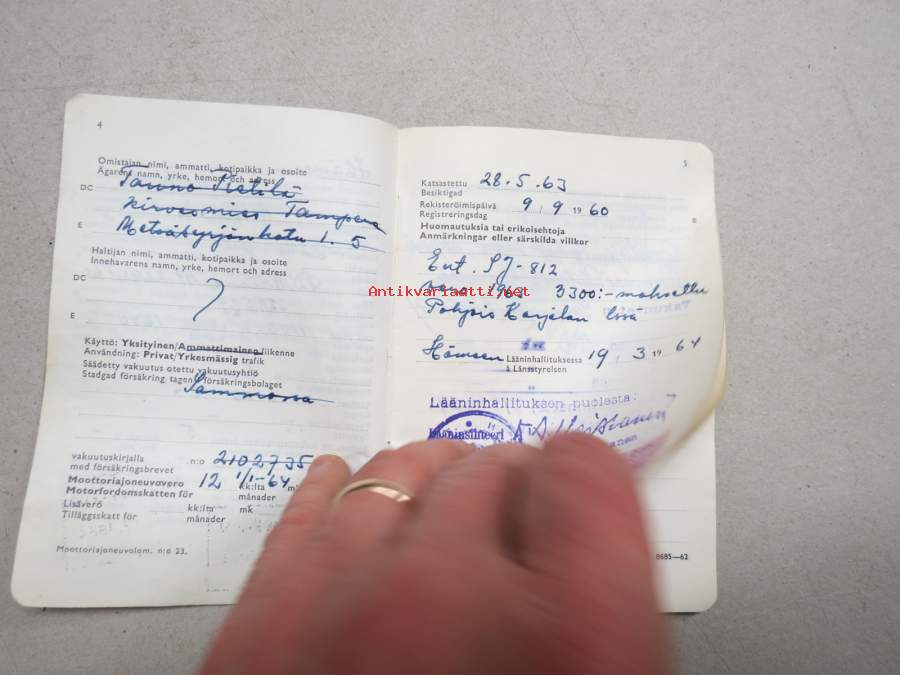 4
Omistajan nimi, ammatti, kotipaikka ja osoite
Ägarens namn, yrke, hemort och adress
DC
Tauno
Tampere
E
1. 5
Haltijan nimi, ammatti, kotipaikka ja osoite
Innehavarens namn, yrke, hemort och adress
DC
E
Käyttö: Yksityinen/Ammattimainen liikenne
Användning: Privat/Yrkesmässig trafik
Säädetty vakuutus otettu vakuutusyhtiö
Stadgad försäkring tagen i försäkringsbolaget
Sammossa
vakuutuskirjalla n:o 2102735
med försäkringsbrevet
Moottoriajoneuvovero 12 kk:lta 1/1-64
Motorfordonsskatten för månader
Lisävero kk:lta mk
Tilläggsskatt för månader
Moottoriajoneuvolom. n:o 23.
5
Katsastettu 28.5.63
Besiktigad
Rekisteröimispäivä 9 / 9 19 60
Registreringsdag
E
Huomautuksia tai erikoisehtoja
Anmärkningar eller särskilda villkor
Ent. SJ-812
1963 3300:- maksettu
Pohjois Karjalan
Hämeen Lääninhallituksessa 19 / 3 19 64
å Länsstyrelsen
Lääninhallituksen puolesta:
8685—62
Antikvariaatti.net